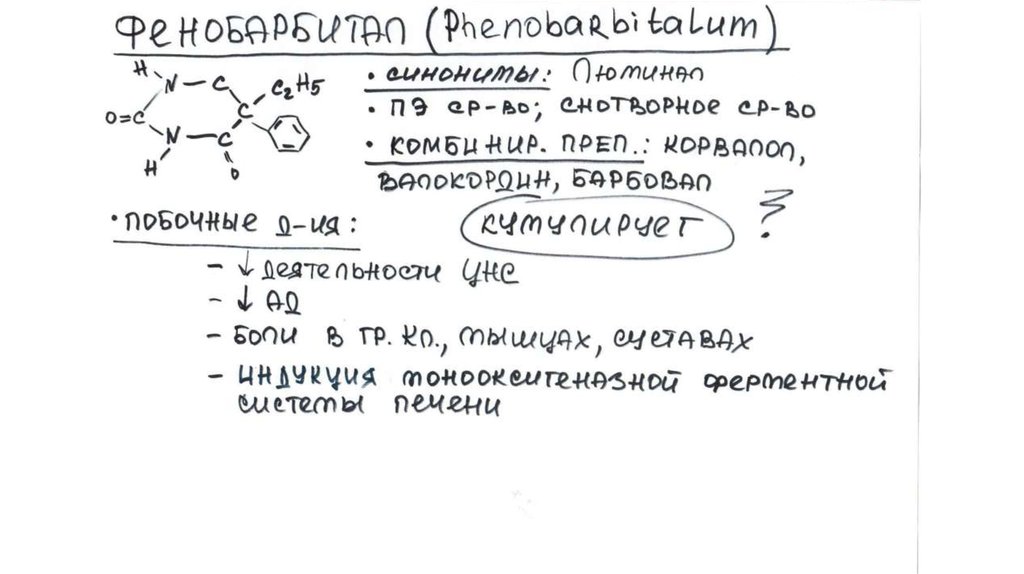 ФЕНОБАРБИТАЛ (Phenobarbitalum)
• СИНОНИМЫ: Люминал
• ПЭ СР-ВО; СНОТВОРНОЕ СР-ВО
• КОМБИНИР. ПРЕП.: КОРВАЛОЛ,
ВАЛОКОРДИН, БАРБОВАЛ
H
N – C
C₂H₅
O=C
C
N – C
H
O
• ПОБОЧНЫЕ Д-ИЯ:
КУМУЛИРУЕТ
?
– ↓ ДЕЯТЕЛЬНОСТИ ЦНС
– ↓ АД
– БОЛИ В ГР. КЛ., МЫШЦАХ, СУСТАВАХ
– ИНДУКЦИЯ МОНООКСИГЕНАЗНОЙ ФЕРМЕНТНОЙ
СИСТЕМЫ ПЕЧЕНИ